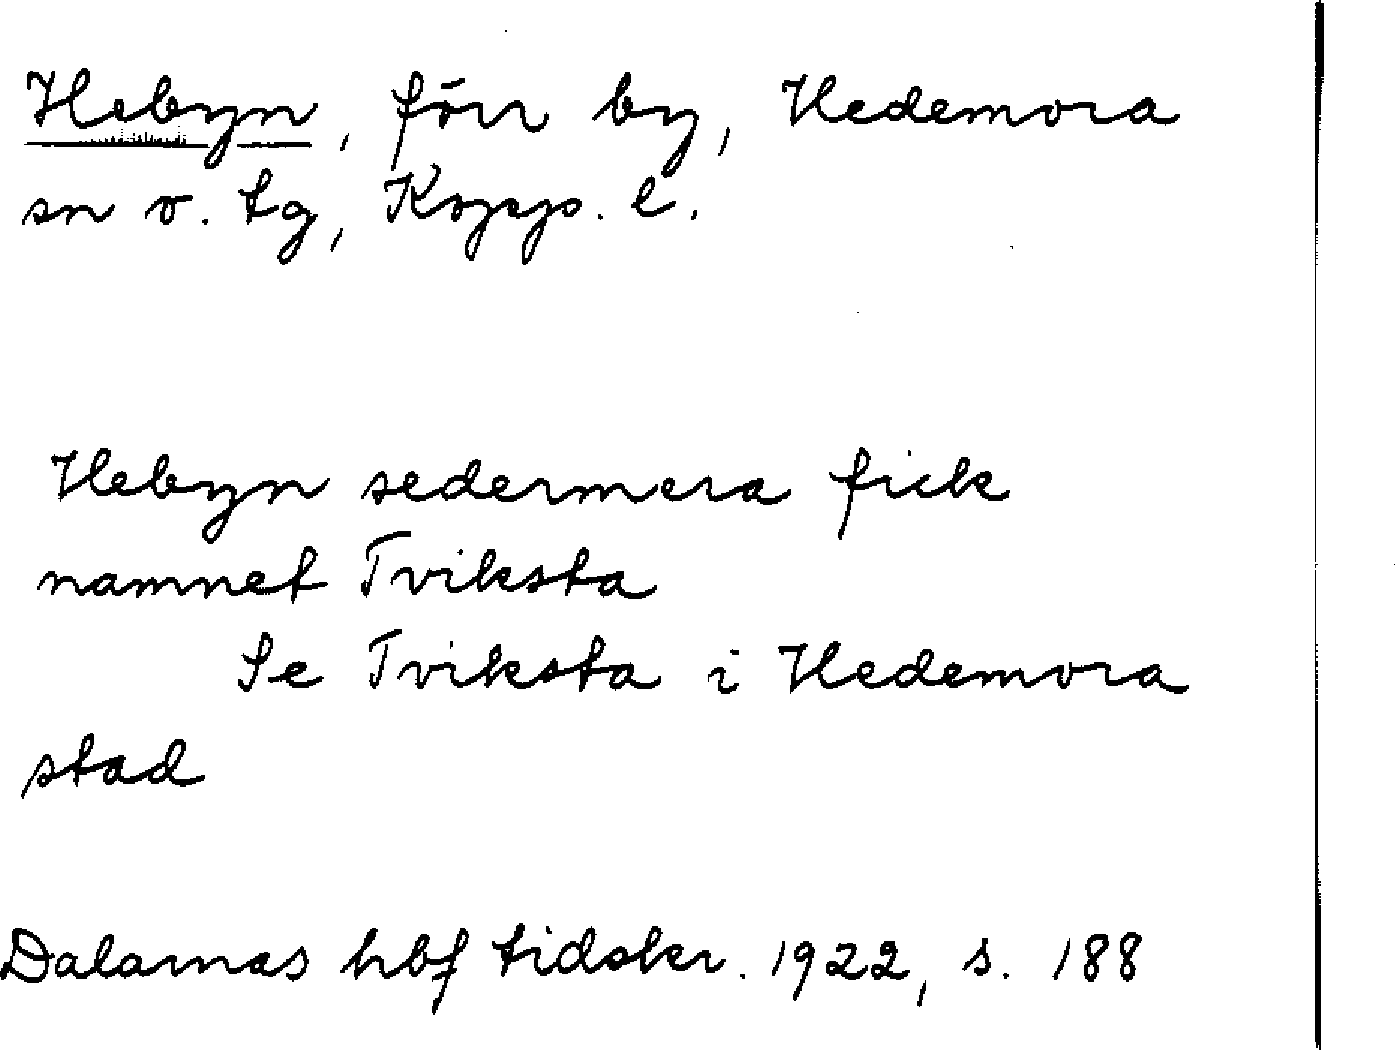 Hebyn, förr by, Hedemora
sn o. tg, Kopp. l.
Hebyn sedermera fick
namnet Tviksta
Se Tviksta i Hedemora
stad
Dalarnas hbf tidskr. 1922, s. 188